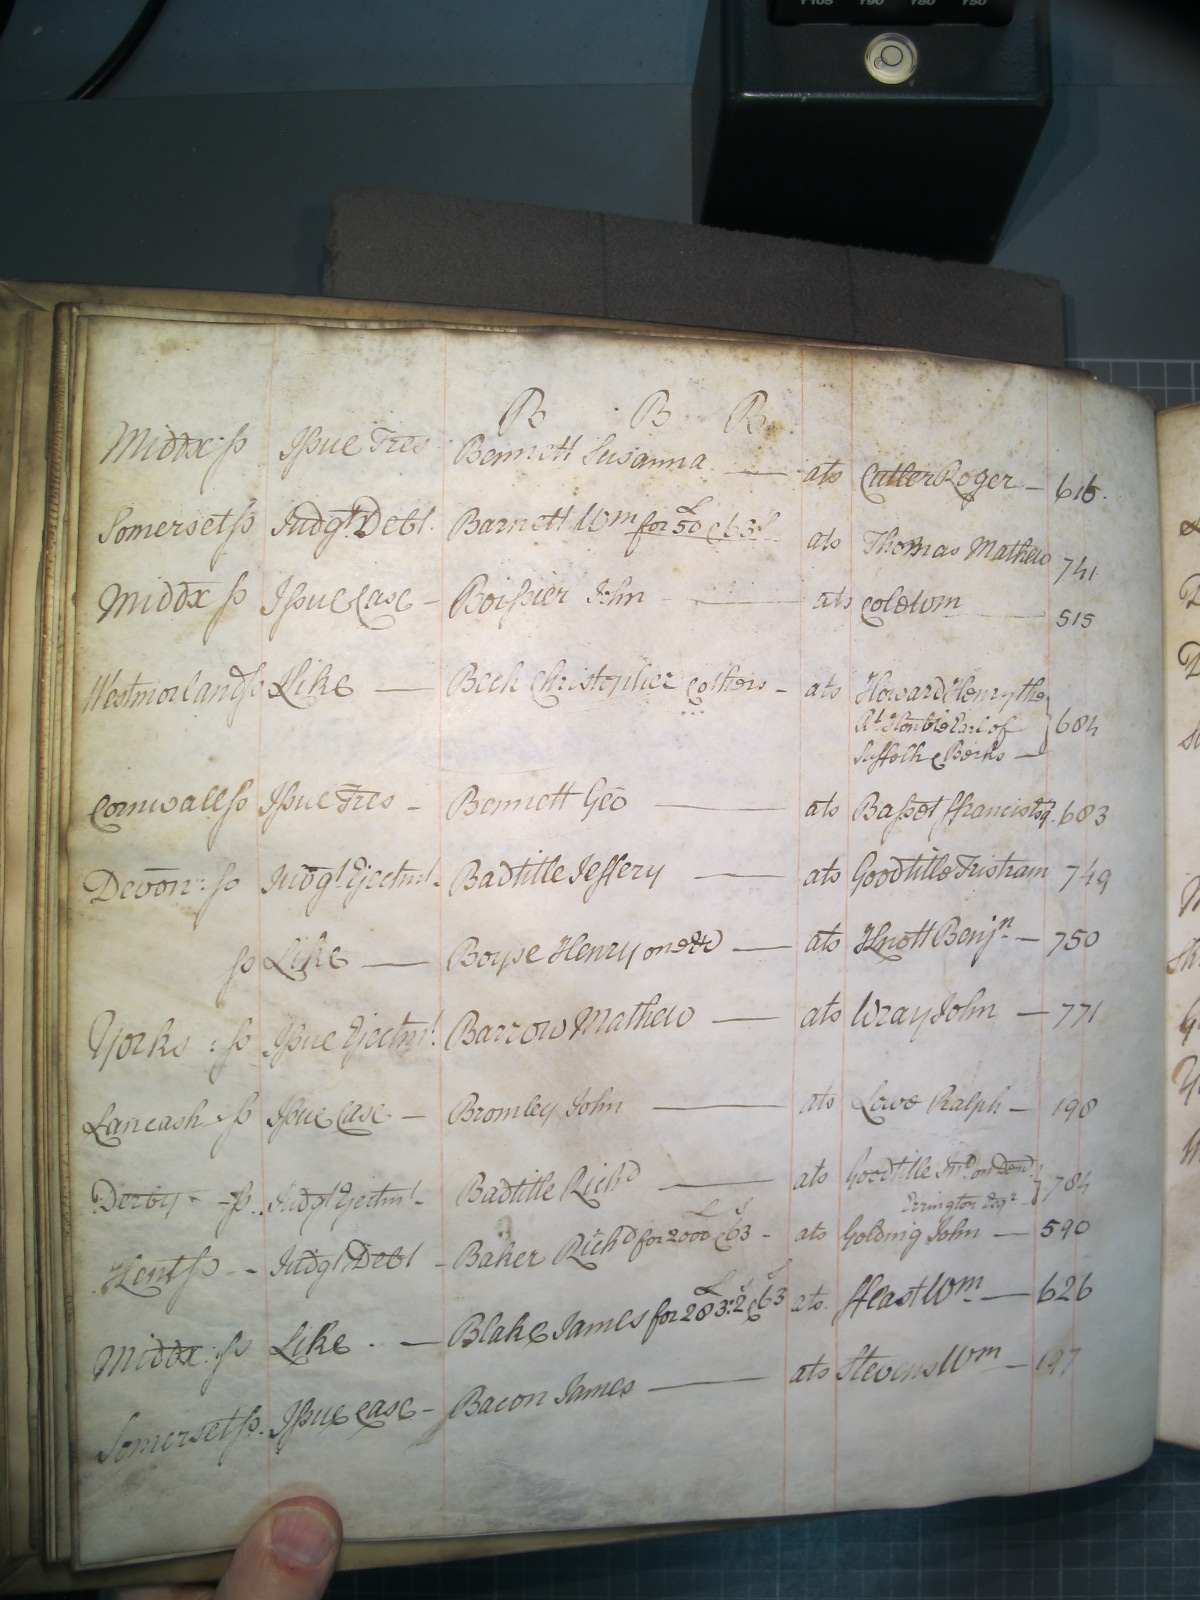 B B B
Middx: ss Issue Tres Bennett Susanna — ats Cutler Roger — 616.
Somerset ss Judgt. Debt. Barnett Wm for 50£ & 63s ats Thomas Mathew 741
Middx ss Issue Case — Boissier John — ats Cole Wm 515
Westmorland ss Like — Beck Christopher & others — ats Howard Henry the
Rt. Honble Earl of 684
Suffolk & Berks —
Cornwall ss Issue Tres — Bennett Geo — ats Basset Francis Esqr. 683
Devon: ss Judgt Ejectmt. Badtitle Jeffery — ats Goodtitle Tristram 749
ss Like — Boyse Henry one &c — ats Knott Benjn. — 750
Yorks: ss Issue Ejectmt. Barrow Mathew — ats Wray John — 771
Lancash ss Issue Case — Bromley John — ats Lowe Ralph — 198
Derby — ss. Judgt Ejectmt — Badtitle Richd — ats Goodtitle Jno. on Demd
Errington Esqr 784
Kent ss — Judgt Debt — Baker Richd for 2000£ & 63s — ats Golding John — 590
Middx: ss Like — Blake James for 283£:2s & 63s ats. ffeast Wm — 626
Somerset ss. Issue Case — Bacon James — ats Stevens Wm — 197